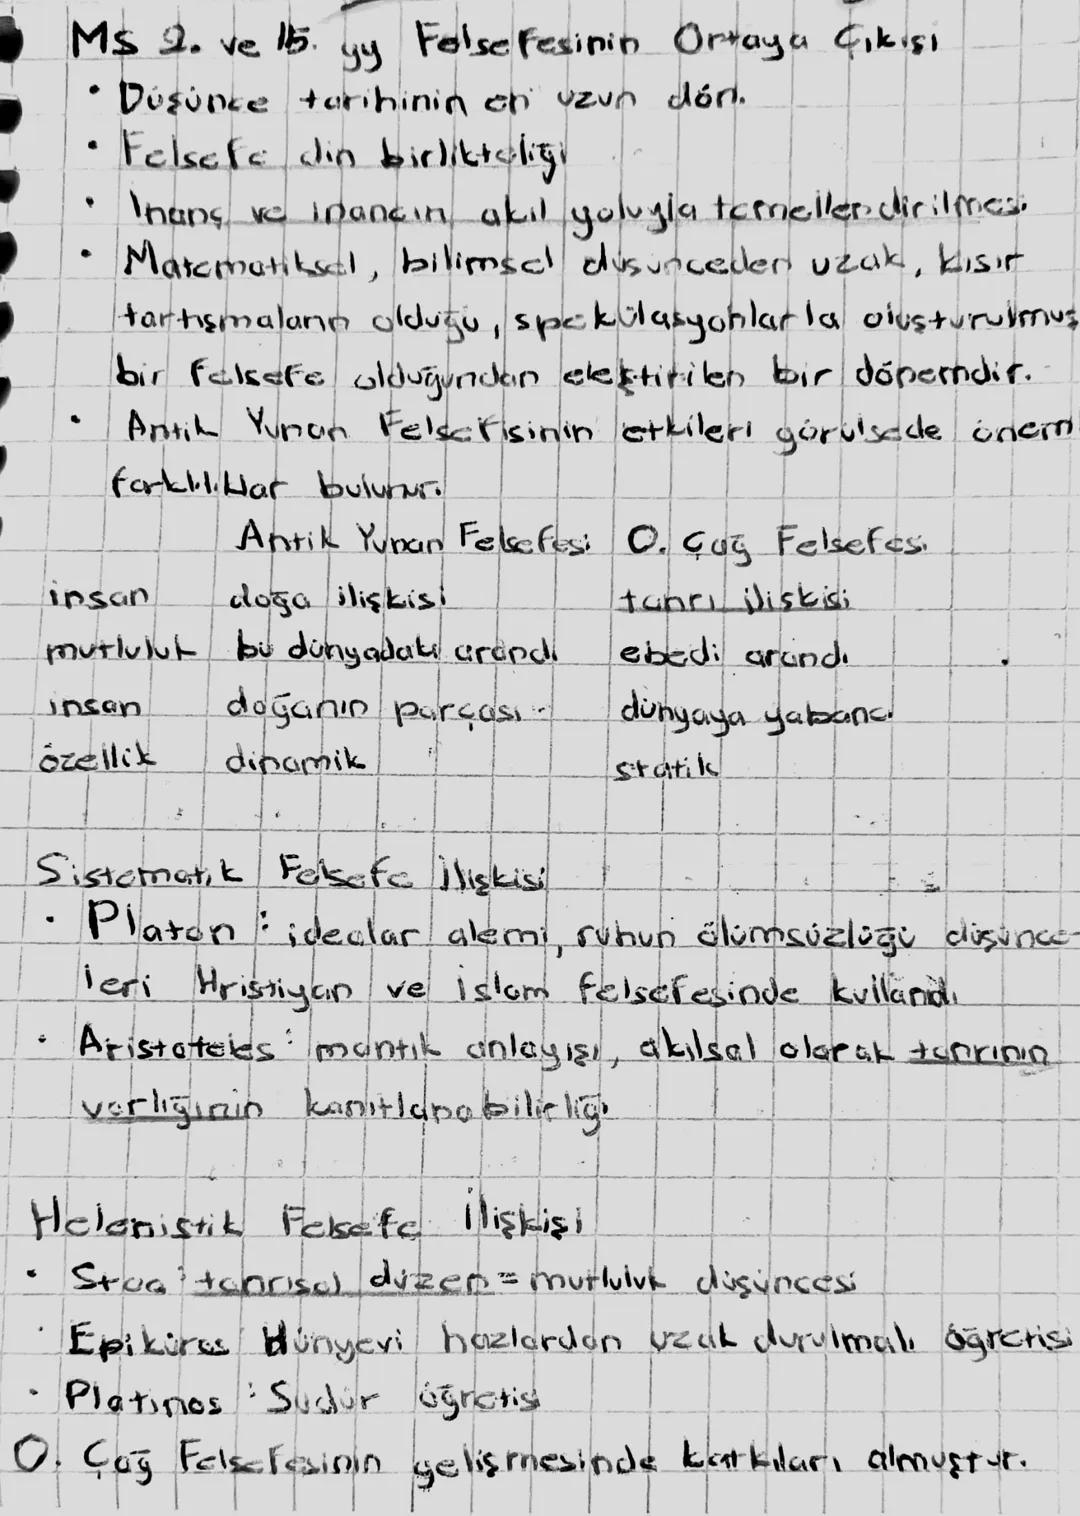 MS 2. ve 15. yy Felsefesinin Ortaya Çıkışı
• Düşünce tarihinin en uzun dön.
• Felsefe din birlikteliği
• İnanç ve inancın akıl yoluyla temellendirilmesi
• Matematiksel, bilimsel düşünceden uzak, kısır
tartışmaların olduğu, spekülasyonlarla oluşturulmuş
bir felsefe olduğundan eleştirilen bir dönemdir.
• Antik Yunan Felsefisinin etkileri görülsede önem
farklılıklar bulunur.
Antik Yunan Felsefesi O. Çağ Felsefesi
insan doğa ilişkisi tanrı ilişkisi
mutluluk bu dünyadaki arandı ebedi arandı
insan doğanın parçası dünyaya yabancı
özellik dinamik statik
Sistematik Felsefe İlişkisi
• Platon : idealar alemi, ruhun ölümsüzlüğü düşünce-
leri Hristiyan ve İslam felsefesinde kullandı
• Aristoteles : mantık anlayışı, akılsal olarak tanrının
varlığının kanıtlanabilirliği
Helenistik Felsefe İlişkisi
• Stoa : tanrısal düzen = mutluluk düşüncesi
• Epiküros dünyevi hazlardan uzak durulmalı öğretisi
• Platinos : Sudür öğretisi
O. Çağ Felsefesinin gelişmesinde katkıları almuştur.